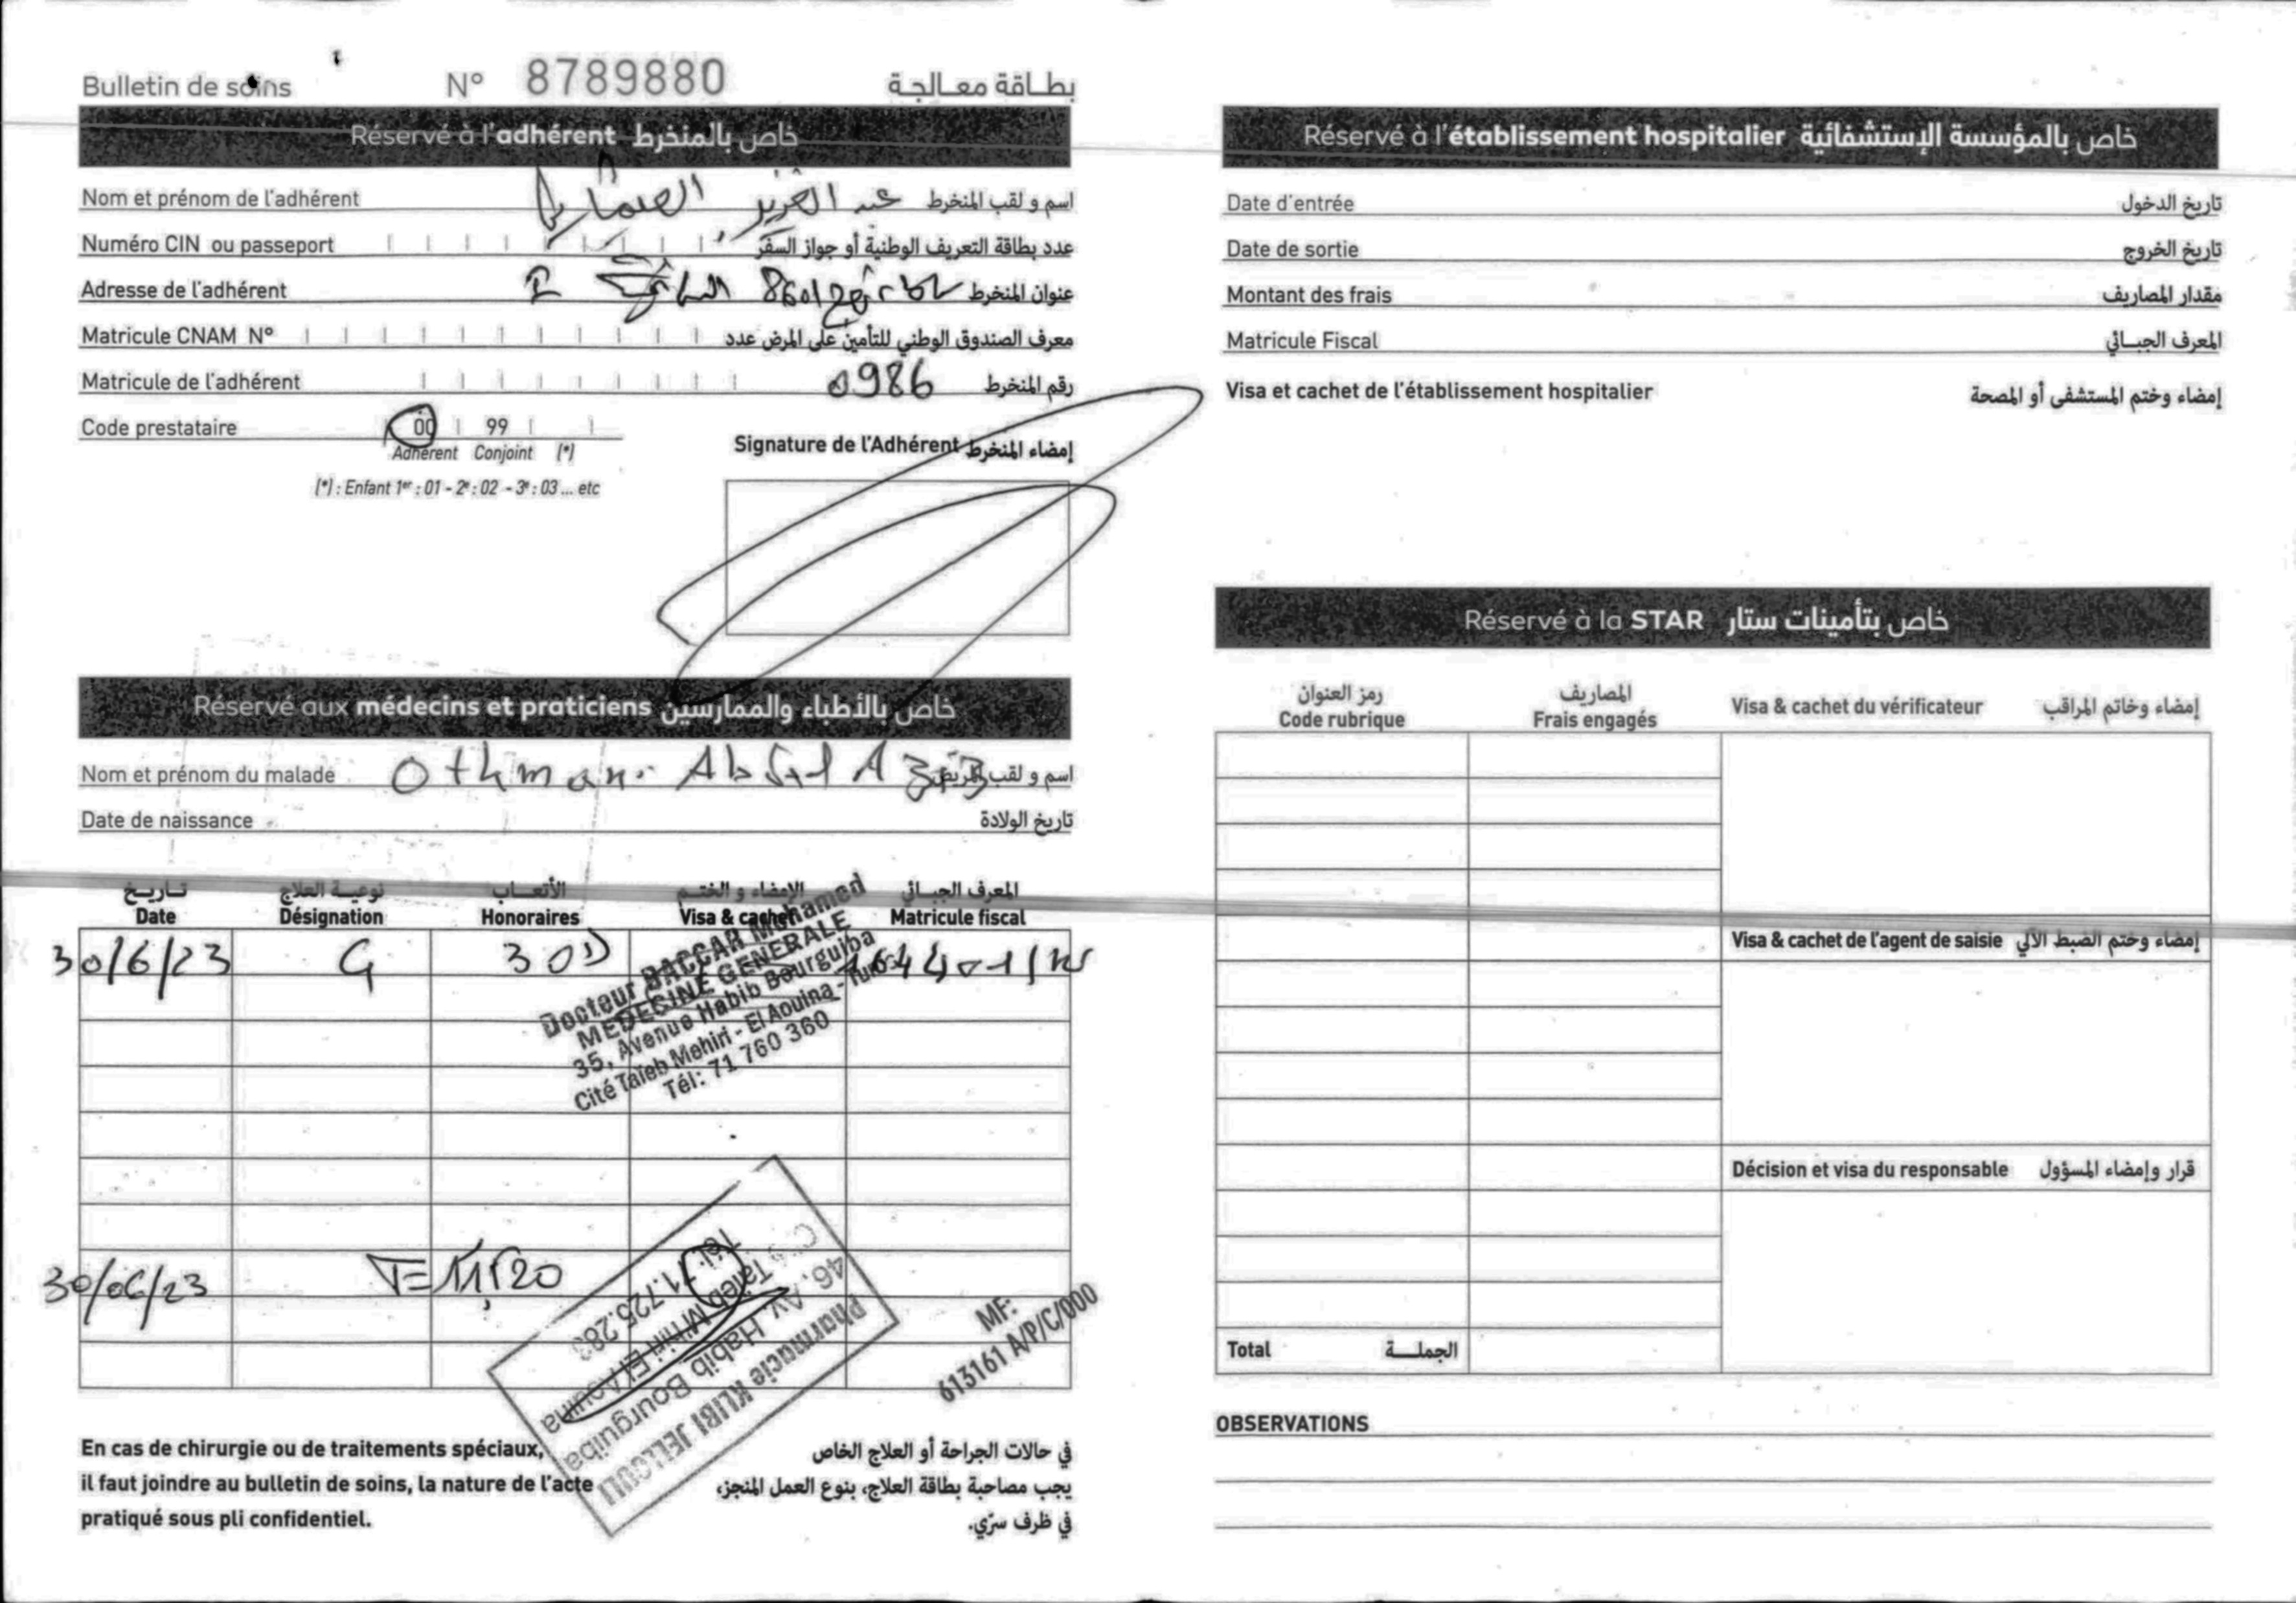 Bulletin de soins N° 8789880 بطاقة معالجة
Réservé à l'adhérent خاص بالمنخرط
Nom et prénom de l'adhérent عبد العزيز العثماني اسم و لقب المنخرط
Numéro CIN ou passeport عدد بطاقة التعريف الوطنية أو جواز السفر
Adresse de l'adhérent عنوان المنخرط
Matricule CNAM N° معرف الصندوق الوطني للتأمين على المرض عدد
Matricule de l'adhérent 0986 رقم المنخرط
Code prestataire 00 99
Adhérent Conjoint (*)
(*) : Enfant 1er : 01 - 2e : 02 - 3e : 03 ... etc
Signature de l'Adhérent إمضاء المنخرط
Réservé aux médecins et praticiens خاص بالأطباء والممارسين
Nom et prénom du malade Othmani Abdel Aziz اسم و لقب المريض
Date de naissance تاريخ الولادة
تاريخ نوعية العلاج الأتعاب الإمضاء و الختم المعرف الجبائي
Date Désignation Honoraires Visa & cachet Matricule fiscal
30/6/23 G 30D
Docteur BACCAR Mohamed
MEDECINE GENERALE
35, Avenue Habib Bourguiba
Cité Taïeb Mehiri - El Aouina - Tunis
Tél: 71 760 360
30/06/23 T= 11,520
Pharmacie KLIBI JELLOULI
46, Av. Habib Bourguiba
Cité Taïeb Mhiri El Aouina
Tél: 71.725.283
MF:
613161 A/P/C/000
En cas de chirurgie ou de traitements spéciaux,
il faut joindre au bulletin de soins, la nature de l'acte
pratiqué sous pli confidentiel.
في حالات الجراحة أو العلاج الخاص
يجب مصاحبة بطاقة العلاج، بنوع العمل المنجز،
في ظرف سرّي.
Réservé à l'établissement hospitalier خاص بالمؤسسة الإستشفائية
Date d'entrée تاريخ الدخول
Date de sortie تاريخ الخروج
Montant des frais مقدار المصاريف
Matricule Fiscal المعرف الجبائي
Visa et cachet de l'établissement hospitalier إمضاء وختم المستشفى أو المصحة
Réservé à la STAR خاص بتأمينات ستار
رمز العنوان المصاريف
Code rubrique Frais engagés Visa & cachet du vérificateur إمضاء وخاتم المراقب
Visa & cachet de l'agent de saisie إمضاء وختم الضبط الآلي
Décision et visa du responsable قرار وإمضاء المسؤول
Total الجملة
OBSERVATIONS